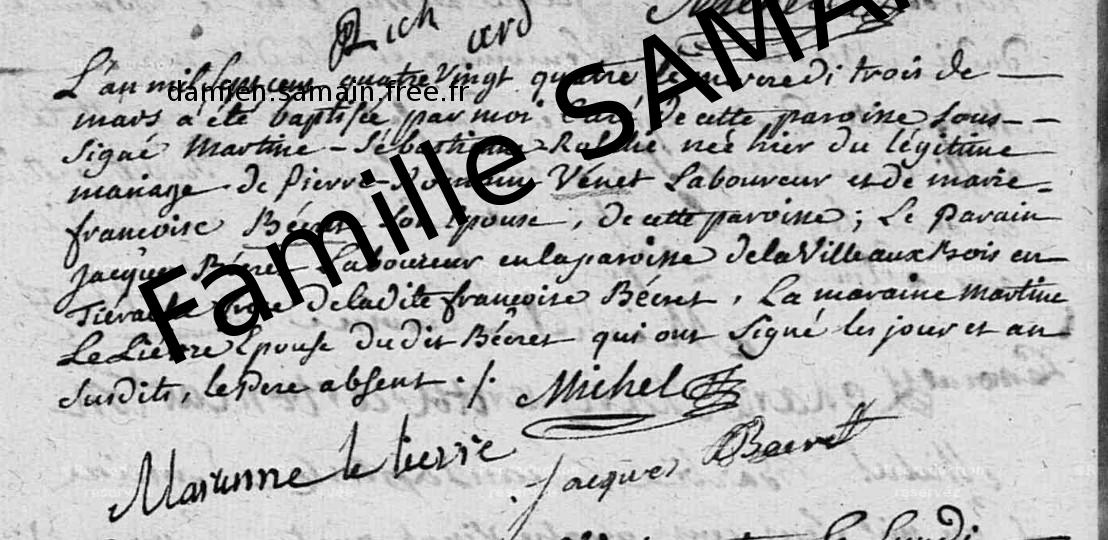 Rich
ard
L'an mil sept cent quatre Vingt quatre le mercredi trois de
damien.samain.free.fr
mars a été baptisée par moi Curé de cette paroisse sous-
signé Martine - Sébastienne - née hier du légitime
mariage de Pierre - Romain Venet Laboureur et de marie-
françoise Bécret son Epouse, de cette paroisse; Le Parain
Jacques Bécret Laboureur en la paroisse de la Ville aux Bois en
Tierache de ladite françoise Bécret, La maraine Martine
Le Lierre Epouse du dit Bécret qui ont Signé les jour et an
susdits, le Pere absent ./.
Michel
le lierre
Jacques Becret
Famille SAMAI
Lundi